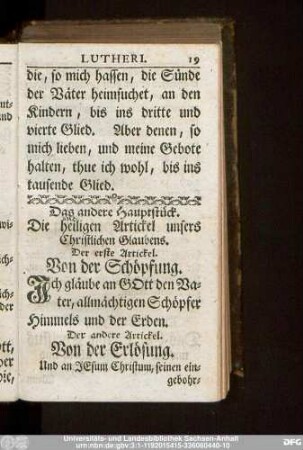 LUTHERI. 19
die, so mich hassen, die Sünde
der Väter heimsuchet, an den
Kindern, bis ins dritte und
vierte Glied. Aber denen, so
mich lieben, und meine Gebote
halten, thue ich wohl, bis ins
tausende Glied.
Das andere Hauptstück.
Die heiligen Artickel unsers
Christlichen Glaubens.
Der erste Artickel.
Von der Schöpfung.
Ich gläube an GOtt den Va-
ter, allmächtigen Schöpfer
Himmels und der Erden.
Der andere Artickel.
Von der Erlösung.
Und an JEsum Christum, seinen ein-
gebohr-
Universitäts- und Landesbibliothek Sachsen-Anhalt
urn:nbn:de:gbv:3:1-1192015415-336060440-10
DFG